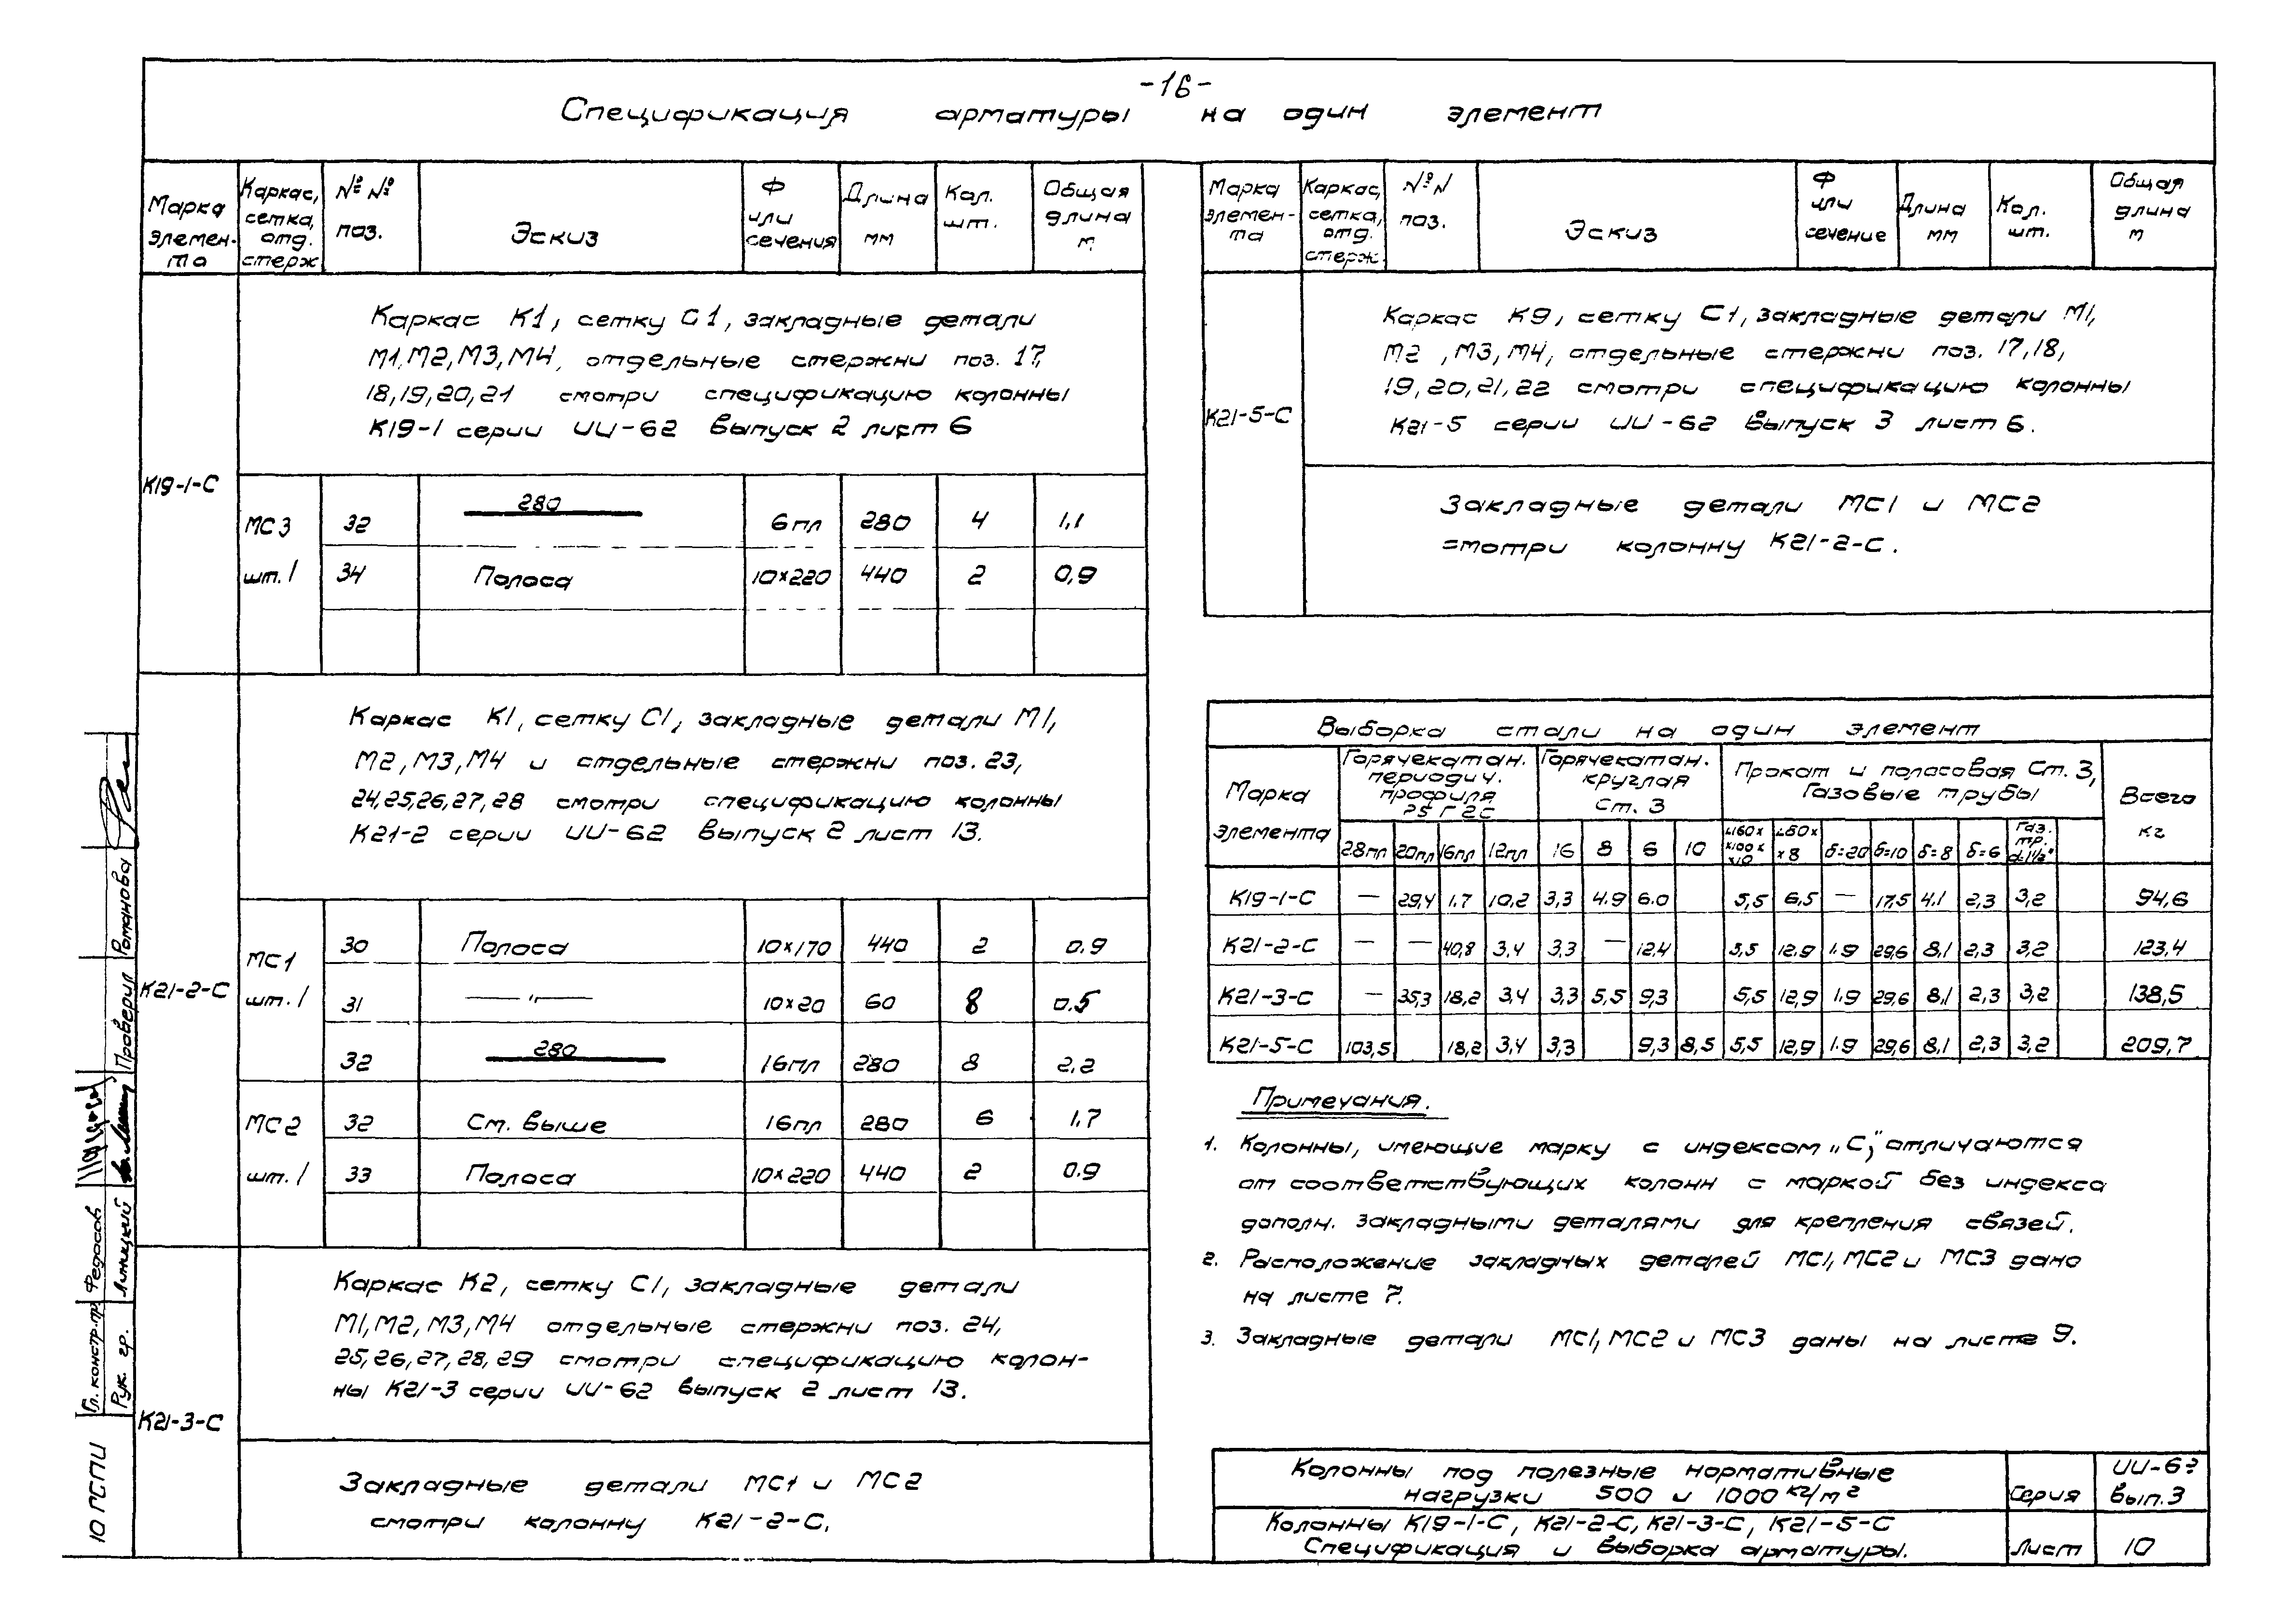 -16-
Спецификация арматуры на один элемент
Марка элемен-та
Каркас, сетка, отд. стерж
№№ поз.
Эскиз
Ф или сечения
Длина мм
Кол. шт.
Общая длина м
К19-1-С
Каркас К1, сетку С1, закладные детали
М1,М2,М3,М4, отдельные стержни поз. 17,
18,19,20,21 смотри спецификацию колонны
К19-1 серии ИИ-62 выпуск 2 лист 6
МС3 32 280 6пл 280 4 1,1
шт.1 34 Полоса 10×220 440 2 0,9
К21-2-С
Каркас К1, сетку С1, закладные детали М1,
М2, М3, М4 и отдельные стержни поз. 23,
24,25,26,27,28 смотри спецификацию колонны
К21-2 серии ИИ-62 выпуск 2 лист 13.
МС1 30 Полоса 10×170 440 2 0.9
шт.1 31 —"— 10×20 60 8 0.5
32 280 16пл 280 8 2,2
МС2 32 См. выше 16пл 280 6 1,7
шт.1 33 Полоса 10×220 440 2 0.9
К21-3-С
Каркас К2, сетку С1, закладные детали
М1,М2,М3,М4 отдельные стержни поз. 24,
25,26,27,28,29 смотри спецификацию колон-
ны К21-3 серии ИИ-62 выпуск 2 лист 13.
Закладные детали МС1 и МС2
смотри колонну К21-2-С.
Марка элемен-та
Каркас, сетка, отд. стерж.
№N поз.
Эскиз
Ф или сечение
Длина мм
Кол. шт.
Общая длина м
К21-5-С
Каркас К9, сетку С1, закладные детали М1,
М2 ,М3, М4, отдельные стержни поз. 17,18,
19,20,21,22 смотри спецификацию колонны
К21-5 серии ИИ-62 выпуск 3 лист 6.
Закладные детали МС1 и МС2
смотри колонну К21-2-С.
Выборка стали на один элемент
Марка элемента
Горячекатан. периодич. профиля 25Г2С
Горячекатан. круглая Ст. 3
Прокат и полосовая Ст. 3, Газовые трубы
Всего кг
28пл 20пл 16пл 12пл 16 8 6 10 ∟160××100××10 ∟80××8 δ=20 δ=10 δ=8 δ=6 Газ. тр. d=1½"
К19-1-С — 29,4 1.7 10,2 3,3 4.9 6.0 5,5 6,5 — 17,5 4.1 2,3 3,2 94,6
К21-2-С — — 40,8 3,4 3,3 — 12.4 5,5 12,9 1.9 29,6 8,1 2,3 3,2 123,4
К21-3-С — 35,3 18,2 3,4 3,3 5,5 9,3 5,5 12,9 1.9 29,6 8,1 2,3 3,2 138,5
К21-5-С 103,5 18,2 3,4 3,3 9,3 8,5 5,5 12,9 1.9 29,6 8,1 2,3 3,2 209,7
Примечания.
1. Колонны, имеющие марку с индексом „С," отличаются
от соответствующих колонн с маркой без индекса
дополн. закладными деталями для крепления связей.
2. Расположение закладных деталей МС1, МС2 и МС3 дано
на листе 7.
3. Закладные детали МС1, МС2 и МС3 даны на листе 9.
Колонны под полезные нормативные
нагрузки 500 и 1000 кг/м²
Серия
ИИ-62
вып.3
Колонны К19-1-С, К21-2-С, К21-3-С, К21-5-С
Спецификация и выборка арматуры.
Лист
10
10 ГСПИ
Гл. констр.пр. Федосов
Рук. гр. Линицкий
Проверил Романова